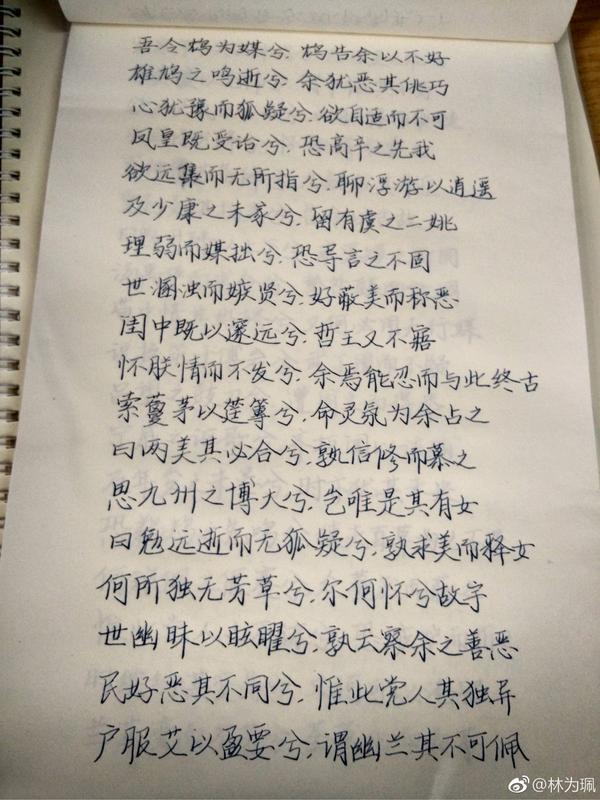 吾令鸩为媒兮，鸩告余以不好
雄鸠之鸣逝兮，余犹恶其佻巧
心犹豫而狐疑兮，欲自适而不可
凤皇既受诒兮，恐高辛之先我
欲远集而无所指兮，聊浮游以逍遥
及少康之未家兮，留有虞之二姚
理弱而媒拙兮，恐导言之不固
世溷浊而嫉贤兮，好蔽美而称恶
闺中既以邃远兮，哲王又不寤
怀朕情而不发兮，余焉能忍而与此终古
索藑茅以筳篿兮，命灵氛为余占之
曰两美其必合兮，孰信修而慕之
思九州之博大兮，岂唯是其有女
曰勉远逝而无狐疑兮，孰求美而释女
何所独无芳草兮，尔何怀兮故宇
世幽昧以眩曜兮，孰云察余之善恶
民好恶其不同兮，惟此党人其独异
户服艾以盈要兮，谓幽兰其不可佩
@林为珮